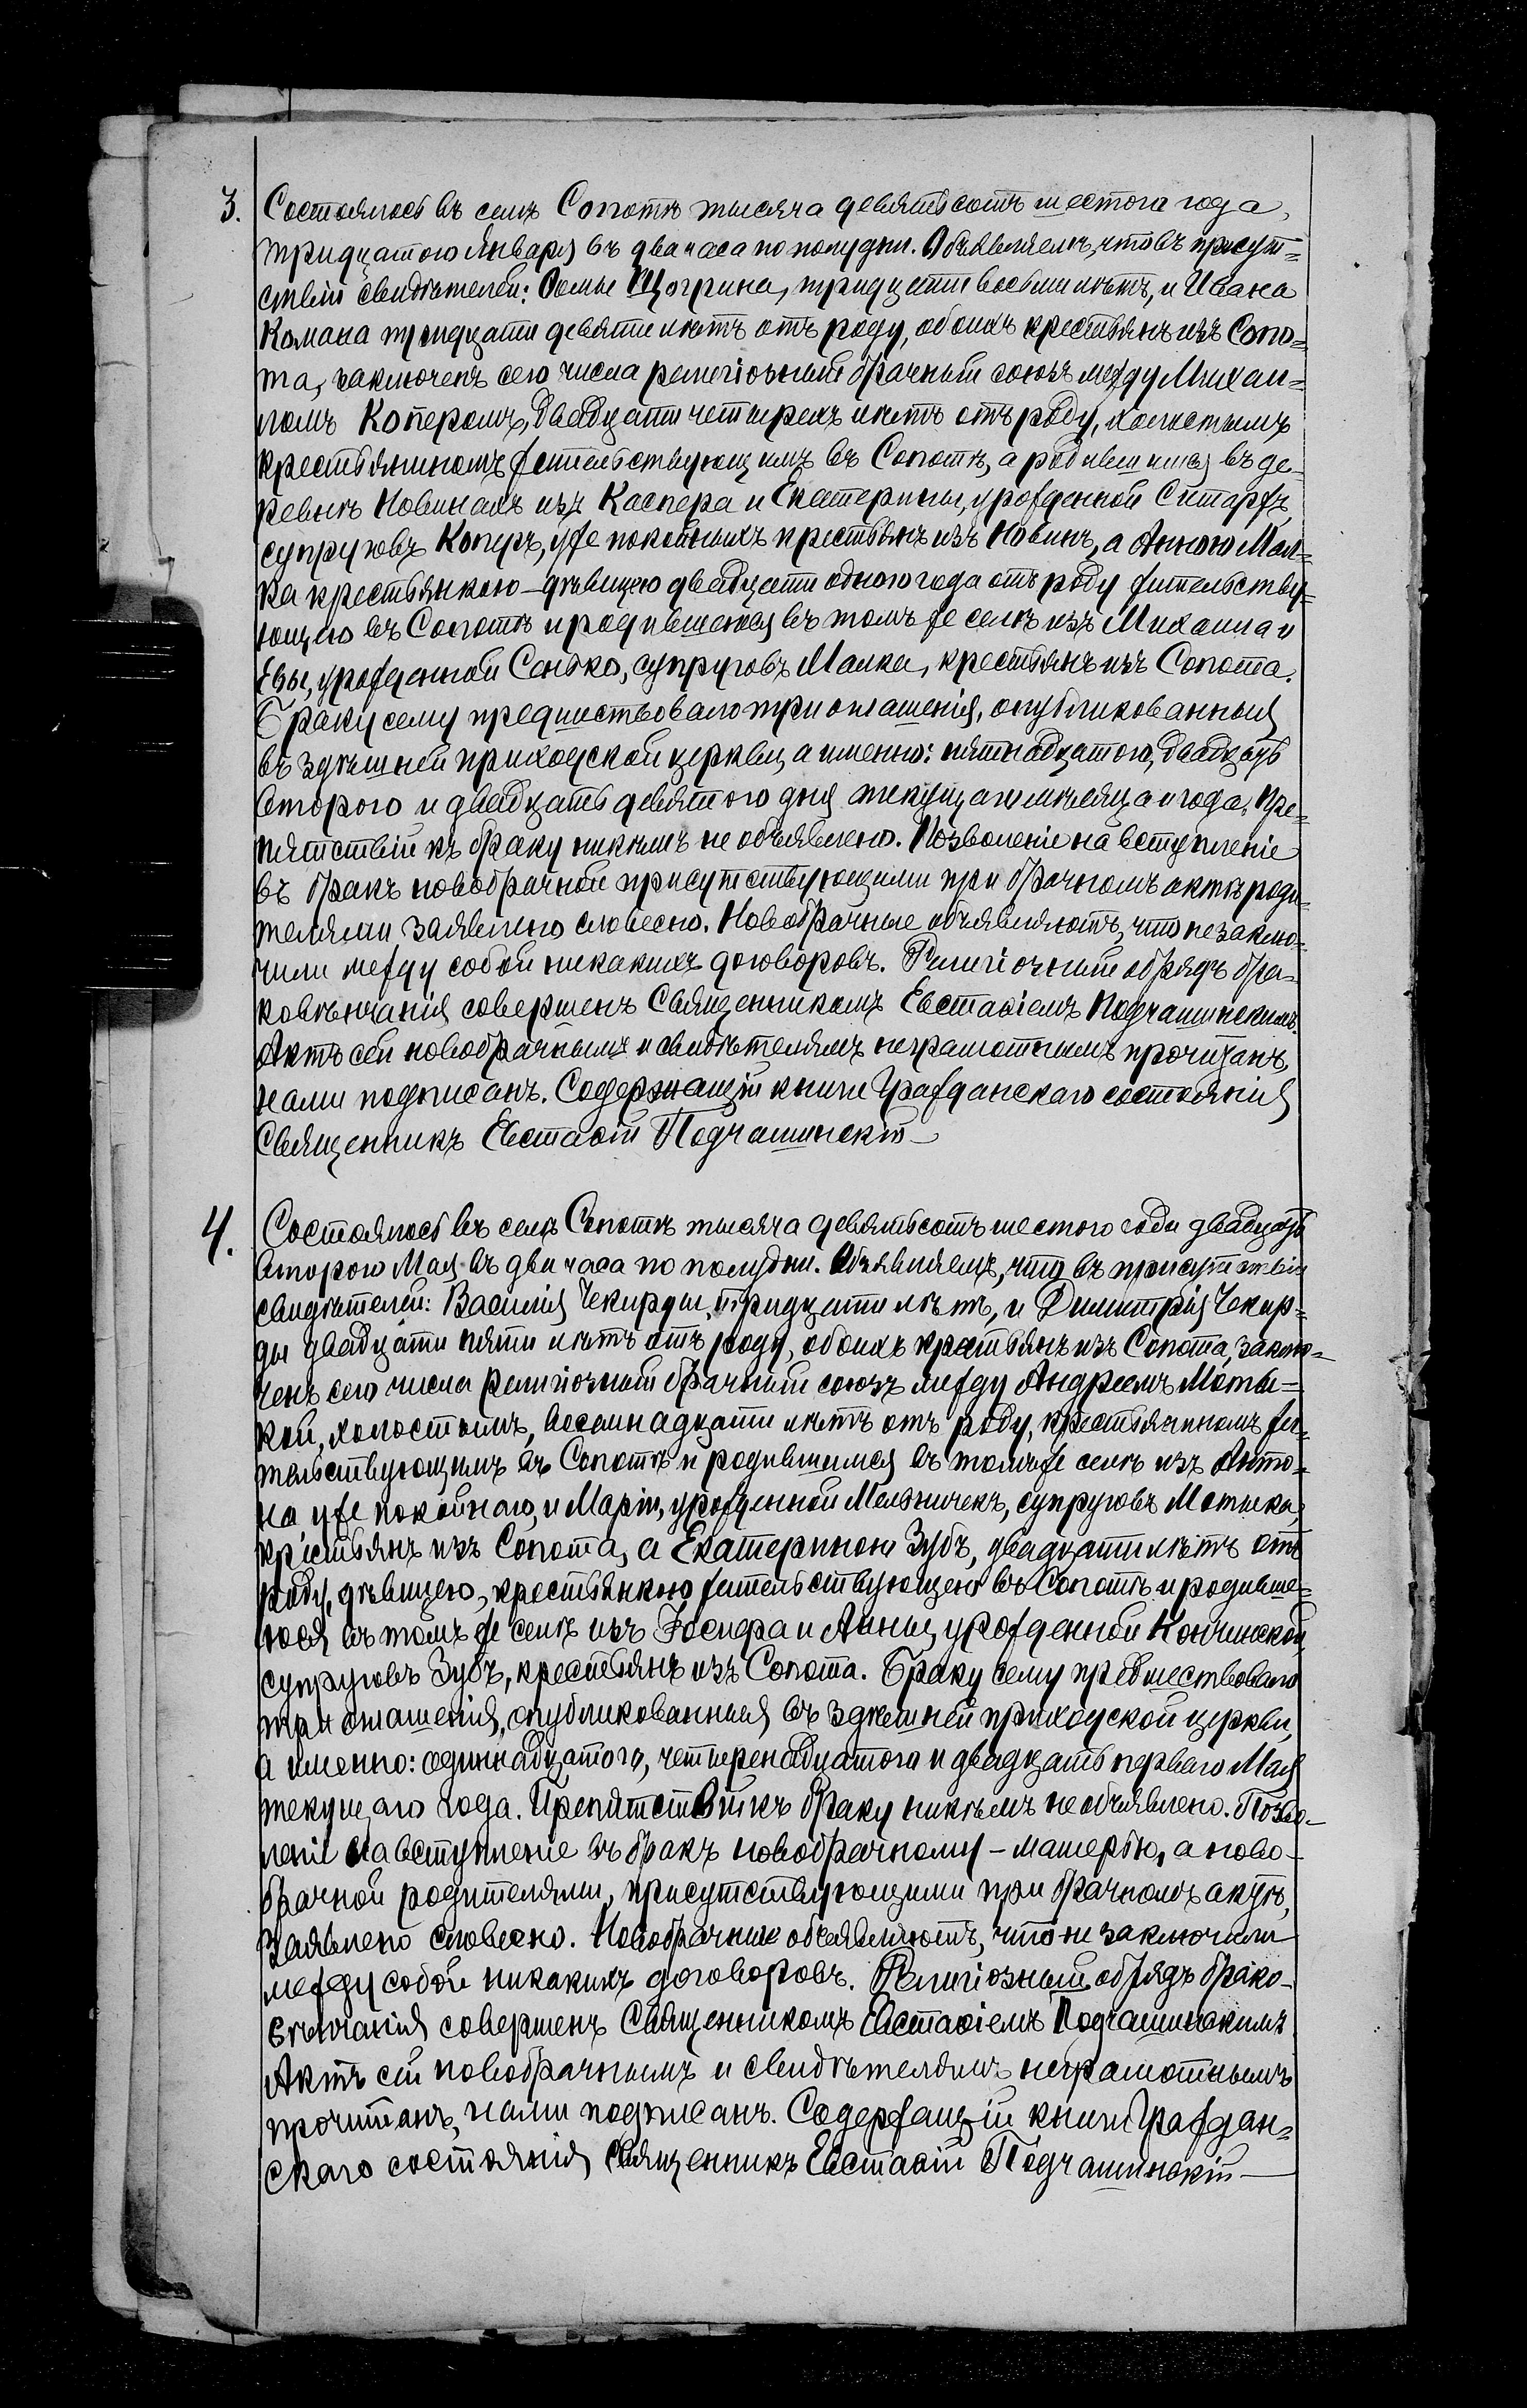 3. Состоялось въ селѣ Сопотѣ тысяча девятьсотъ шестого года,
тридцатого Января въ два часа по полудни. Объявляемъ, что въ присут=
ствіи свидѣтелей: Ѳомы Щогрина, тридцати восьми лѣтъ, и Ивана
Комана тридцати девяти лѣтъ отъ роду, обоихъ крестьянъ изъ Сопо=
та, заключенъ сего числа религіозный брачный союзъ между Михаи=
ломъ Коперомъ, двадцати четырехъ лѣтъ отъ роду, холостымъ
крестьяниномъ жительствующимъ въ Сопотѣ, а родившимся въ де-
ревнѣ Новинахъ изъ Каспера и Екатерины, урожденной Ситаржъ,
супруговъ Коперъ, уже покойныхъ крестьянъ изъ Новинъ, а Анною Мал=
ка крестьянкою – дѣвицею двадцати одного года отъ роду жительству=
ющею въ Сопотѣ и родившеюся въ томъ же селѣ изъ Михаила и
Евы, урожденной Сенько, супруговъ Малка, крестьянъ изъ Сопота.
Браку сему предшествовало три оглашенія, опубликованныя
въ здѣшней приходской церкви, а именно: пятнадцатого, двадцать
второго и двадцать девятого дня текущаго мѣсяца и года. Пре-
пятствій къ браку никѣмъ не объявлено. Позволеніе на вступленіе
въ бракъ новобрачной присутствующими при брачномъ актѣ роди-
телями заявлено словесно. Новобрачные объявляютъ, что не заклю-
чили между собой никакихъ договоровъ. Религіозный обрядъ бра-
ковѣнчанія совершенъ Священникомъ Евстаѳіемъ Подчашинскимъ.
Актъ сей новобрачнымъ и свидѣтелямъ неграмотнымъ прочитанъ,
нами подписанъ. Содержащій книги Гражданскаго состоянія
Священникъ Евстаѳій Подчашинскій –
4. Состоялось въ селѣ Сопотѣ тысяча девятьсотъ шестого года двадцать
второго Мая въ два часа по полудни. Объявляемъ, что въ присутствіи
свидѣтелей: Василія Чекирды, тридцати лѣтъ, и Димитрія Чекир=
ды двадцати пяти лѣтъ отъ роду, обоихъ крестьянъ изъ Сопота, заклю-
ченъ сего числа религіозный брачный союзъ между Андреемъ Моты=
кой, холостымъ, восемнадцати лѣтъ отъ роду, крестьяниномъ жи-
тельствующимъ въ Сопотѣ и родившимся въ томъ же селѣ изъ Анто=
на, уже покойнаго, и Маріи, урожденной Мельничекъ, супруговъ Мотыка,
крестьянъ изъ Сопота, а Екатериною Зубъ, двадцати лѣтъ отъ
роду, дѣвицею, крестьянкою жительствующею въ Сопотѣ и родивше=
юся въ томъ же селѣ изъ Іосифа и Анны, урожденной Кончинской,
супруговъ Зубъ, крестьянъ изъ Сопота. Браку сему предшествовало
три оглашенія, опубликованныя въ здѣшней приходской церкви,
а именно: одиннадцатого, четыренадцатого и двадцать перваго Мая
текущаго года. Препятствій къ браку никѣмъ не объявлено. Позво-
леніе на вступленіе въ бракъ новобрачному – матерью, а ново-
брачной родителями, присутствующими при брачномъ актѣ,
заявлено словесно. Новобрачные объявляютъ, что не заключили
между собой никакихъ договоровъ. Религіозный обрядъ брако-
вѣнчанія совершенъ Священникомъ Евстаѳіемъ Подчашинскимъ
Актъ сей новобрачнымъ и свидѣтелямъ неграмотнымъ
прочитанъ, нами подписанъ. Содержащій книги Граждан=
скаго состоянія Священникъ Евстаѳій Подчашинскій –